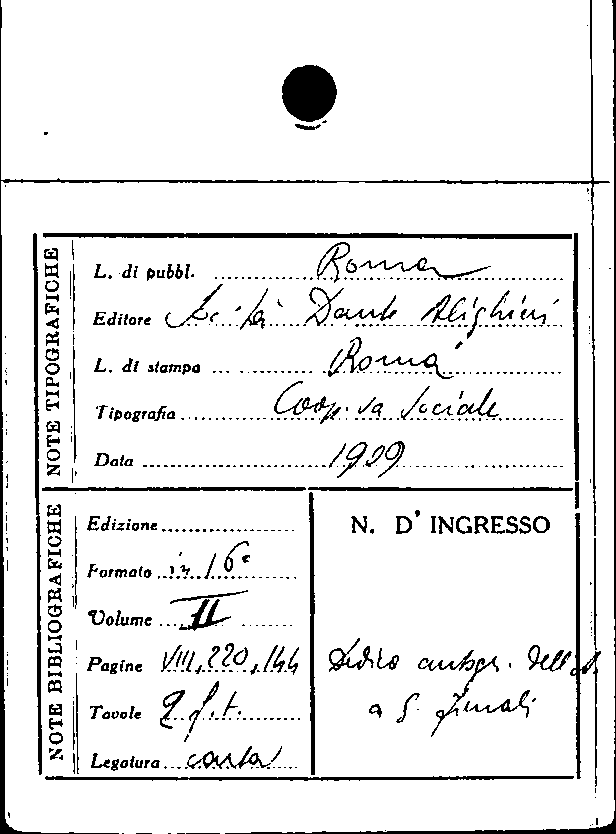 NOTE TIPOGRAFICHE
L. di pubbl. Roma
Editore Dante Alighieri
L. di stampa Roma
Tipografia Coop.va Sociale
Data 1909
NOTE BIBLIOGRAFICHE
Edizione
Formato in 16°
Volume II
Pagine VIII, 220, 144
Tavole 2 f.t.
Legatura carta
N. D' INGRESSO
autogr. dell'
a G.